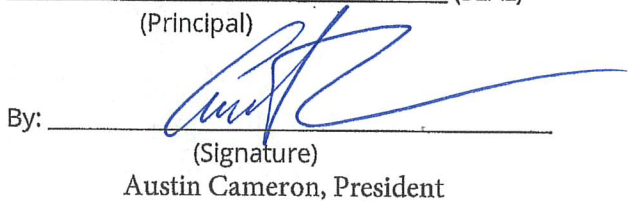 (Principal)
By:
(Signature)
Austin Cameron, President